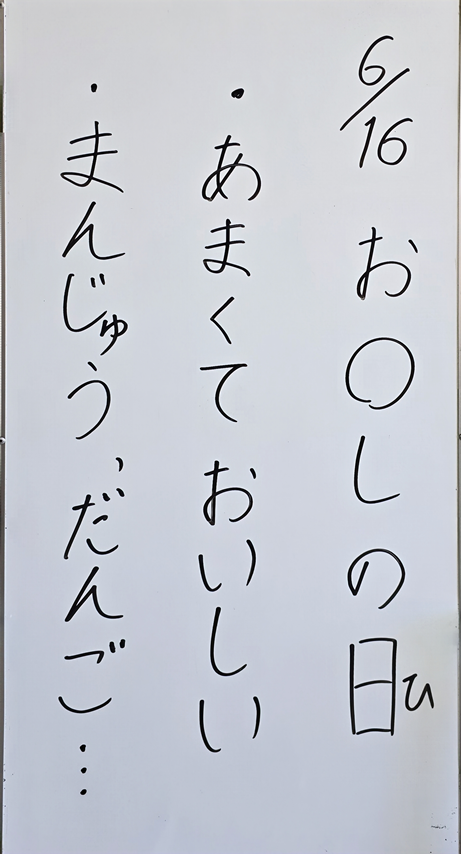 6/16 お○しの日ひ
・あまくて おいしい
・まんじゅう、だんご…